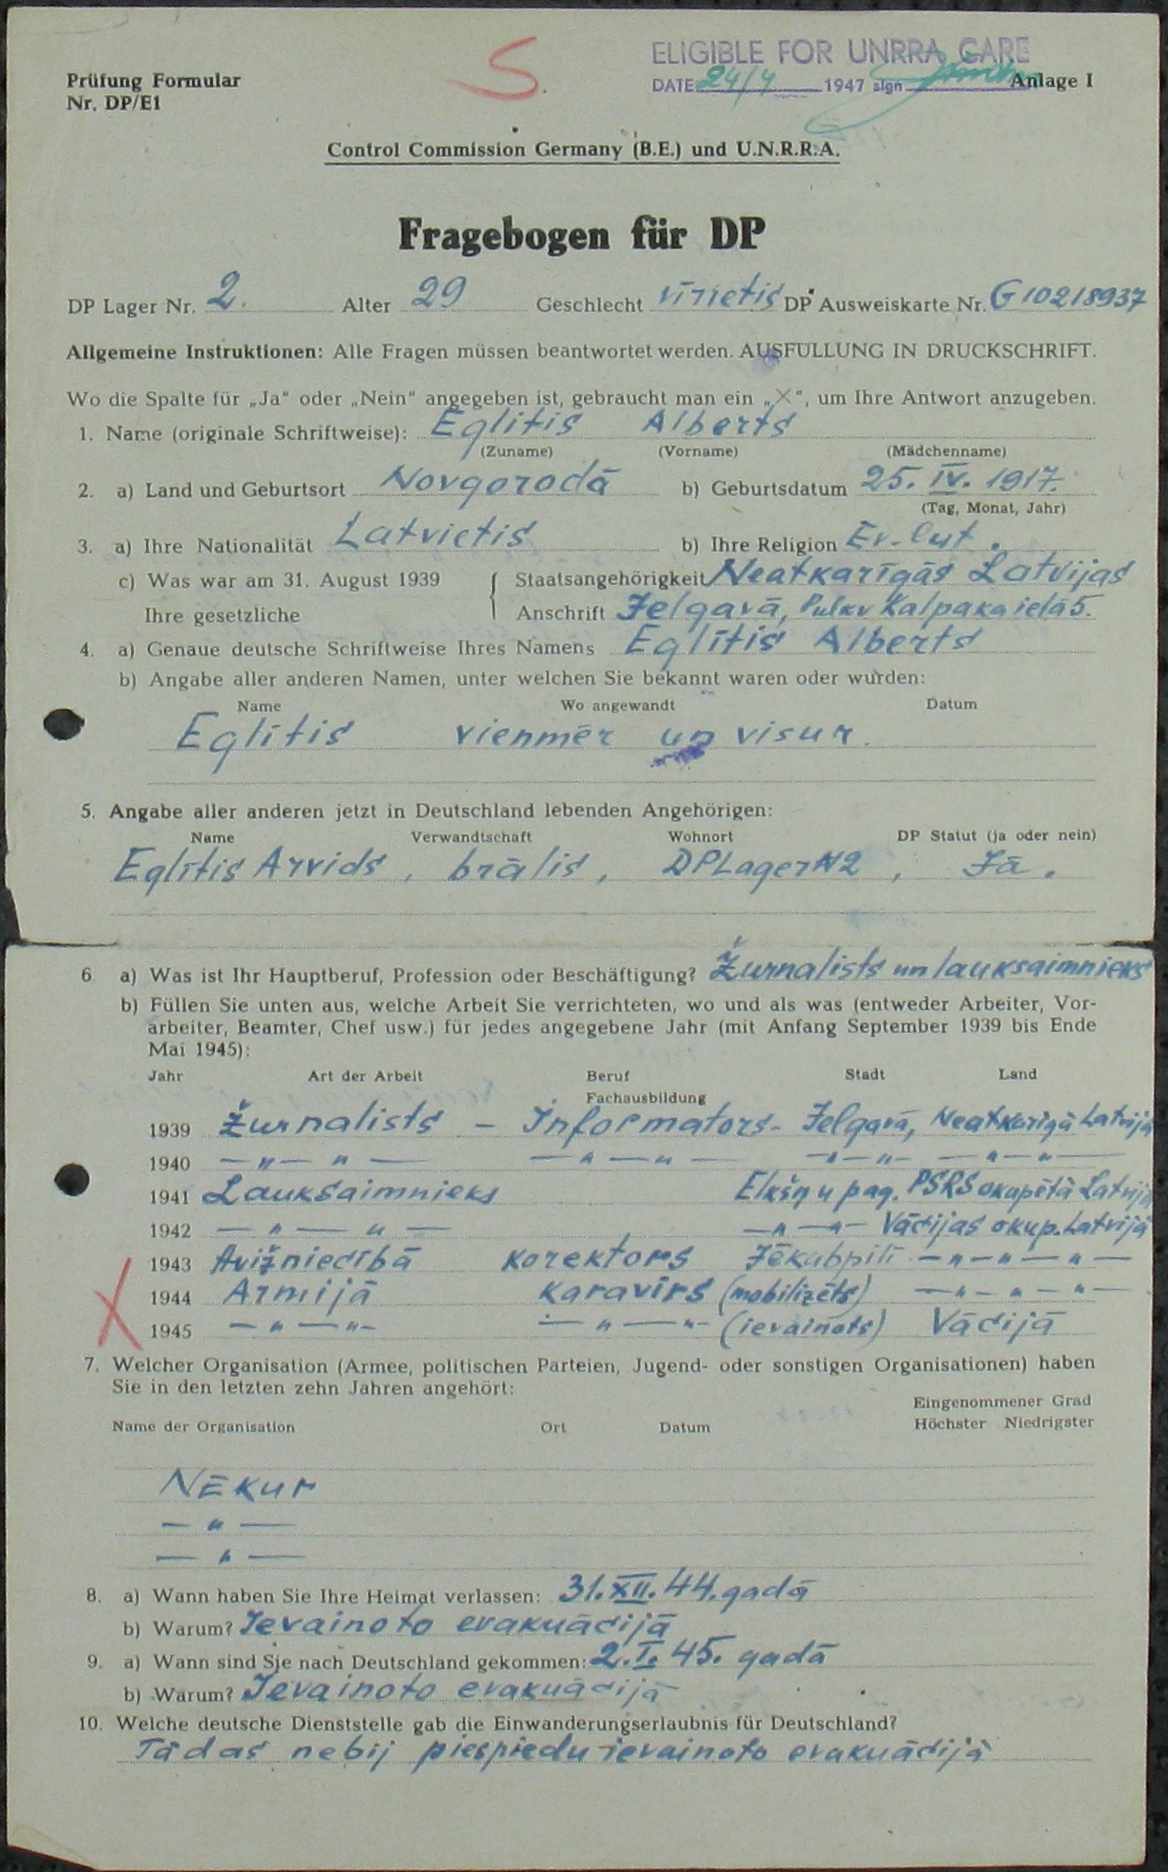 S.
ELIGIBLE FOR UNRRA CARE
Prüfung Formular
Nr. DP/E1
DATE 24/4 1947 sign
Anlage I
Control Commission Germany (B.E.) und U.N.R.R.A.
Fragebogen für DP
DP Lager Nr. 2. Alter 29 Geschlecht vīrietis DP Ausweiskarte Nr. G10218937
Allgemeine Instruktionen: Alle Fragen müssen beantwortet werden. AUSFÜLLUNG IN DRUCKSCHRIFT.
Wo die Spalte für „Ja" oder „Nein" angegeben ist, gebraucht man ein „X", um Ihre Antwort anzugeben.
1. Name (originale Schriftweise): Eglītis Alberts
(Zuname) (Vorname) (Mädchenname)
2. a) Land und Geburtsort Novgorodā b) Geburtsdatum 25. IV. 1917.
(Tag, Monat, Jahr)
3. a) Ihre Nationalität Latvietis b) Ihre Religion Ev-lut.
c) Was war am 31. August 1939 { Staatsangehörigkeit Neatkarīgās Latvijas
Ihre gesetzliche Anschrift Jelgavā, Pulkv Kalpaka ielā 5.
4. a) Genaue deutsche Schriftweise Ihres Namens Eglītis Alberts
b) Angabe aller anderen Namen, unter welchen Sie bekannt waren oder wurden:
Name Wo angewandt Datum
Eglītis vienmēr un visur.
5. Angabe aller anderen jetzt in Deutschland lebenden Angehörigen:
Name Verwandtschaft Wohnort DP Statut (ja oder nein)
Eglītis Arvids, brālis, DP Lager N2, Jā.
6 a) Was ist Ihr Hauptberuf, Profession oder Beschäftigung? Žurnalists un lauksaimnieks
b) Füllen Sie unten aus, welche Arbeit Sie verrichteten, wo und als was (entweder Arbeiter, Vor-
arbeiter, Beamter, Chef usw.) für jedes angegebene Jahr (mit Anfang September 1939 bis Ende
Mai 1945):
Jahr Art der Arbeit Beruf Stadt Land
Fachausbildung
1939 Žurnalists - Informators - Jelgavā, Neatkarīgā Latvijā
1940 — " — " — — " — " — — " — " — — " — " —
1941 Lauksaimnieks Elkšņu pag. PSRS okupētā Latvijā
1942 — " — " — — " — " — Vācijas okup. Latvijā
1943 Avižniecībā korektors Jēkabpilī — " — " — " —
1944 Armijā karavīrs (mobilizēts) — " — " — " —
X 1945 — " — " — — " — " — (ievainots) Vācijā
7. Welcher Organisation (Armee, politischen Parteien, Jugend- oder sonstigen Organisationen) haben
Sie in den letzten zehn Jahren angehört:
Eingenommener Grad
Name der Organisation Ort Datum Höchster Niedrigster
Nēkur
— " —
— " —
8. a) Wann haben Sie Ihre Heimat verlassen: 31. XII. 44. gadā
b) Warum? Ievainoto evakuācijā
9. a) Wann sind Sie nach Deutschland gekommen: 2. I. 45. gadā
b) Warum? Ievainoto evakuācijā
10. Welche deutsche Dienststelle gab die Einwanderungserlaubnis für Deutschland?
Tādas nebij piespiedu ievainoto evakuācijā